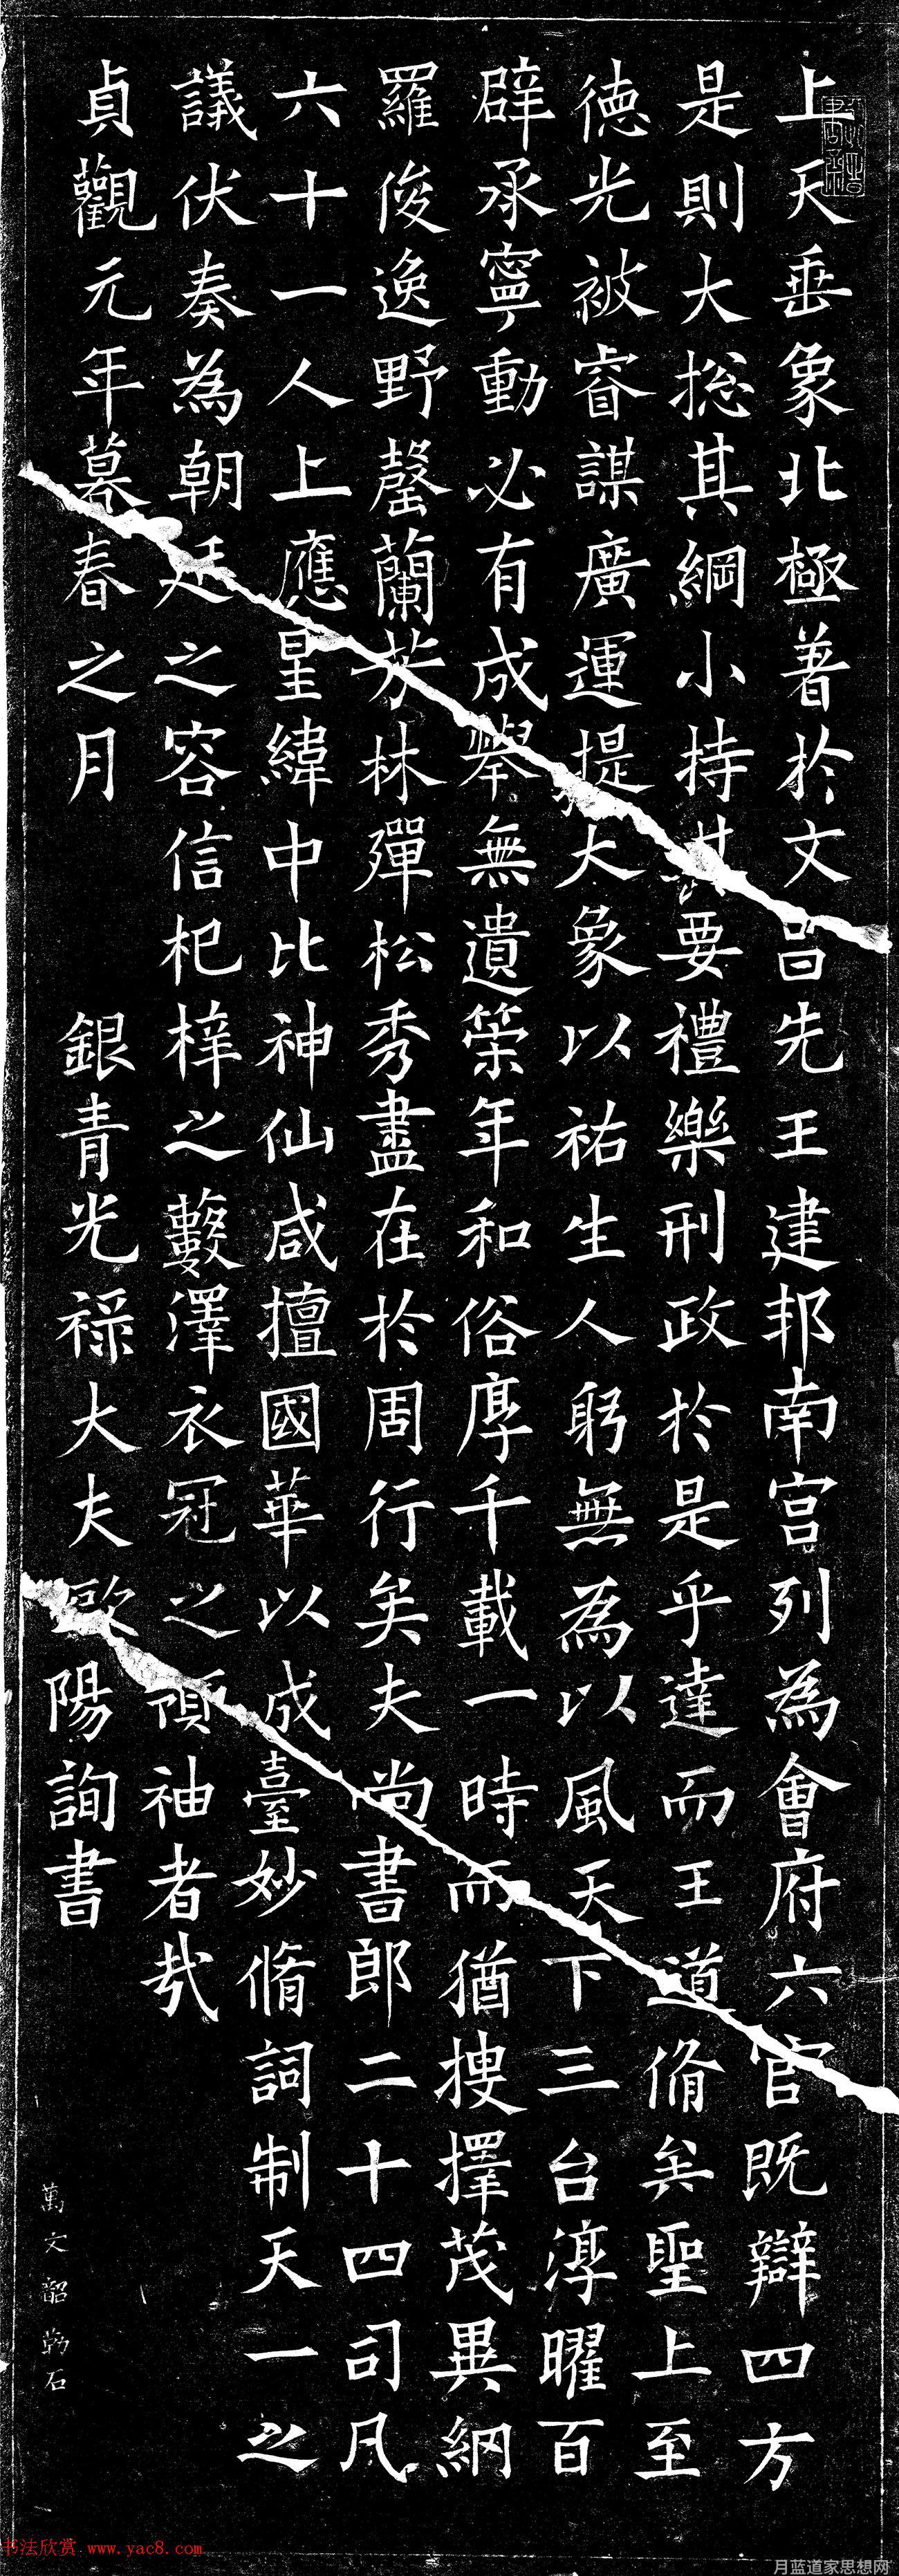 上天垂象北極著於文昌先王建邦南宮列為會府六官既辯四方
是則大捴其綱小持其要禮樂刑政於是乎達而王道脩矣聖上至
德光被睿謀廣運提大象以祐生人躬無為以風天下三台淳曜百
辟承寧動必有成舉無遺筞年和俗厚千載一時而猶搜擇茂異網
羅俊逸野罄蘭芳林殫松秀盡在於周行矣夫尚書郎二十四司凡
六十一人上應星緯中比神仙咸擅國華以成臺妙脩詞制天一之
議伏奏為朝廷之容信杞梓之藪澤衣冠之領袖者哉
貞觀元年暮春之月 銀青光祿大夫歐陽詢書
萬文韶勒石
书法欣赏 www.yac8.com
月蓝道家思想网